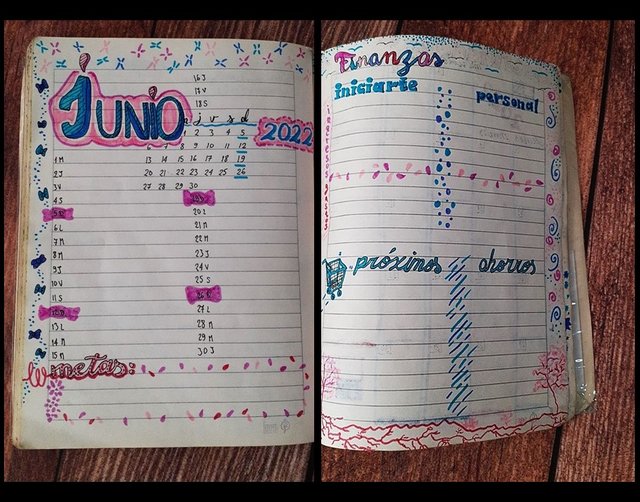 16 J
17 V
18 S
JUNIO
j v s d
2022
2 3 4 5
6 7 8 9 10 11 12
13 14 15 16 17 18 19
20 21 22 23 24 25 26
27 28 29 30
1 M
2 J
3 V
4 S
5 D
6 L
7 M
8 M
9 J
10 V
11 S
12 D
13 L
14 M
15 M
19 D
20 L
21 M
22 M
23 J
24 V
25 S
26 D
27 L
28 M
29 M
30 J
metas:
Finanzas
iniciarte
personal
próximos
ahorros